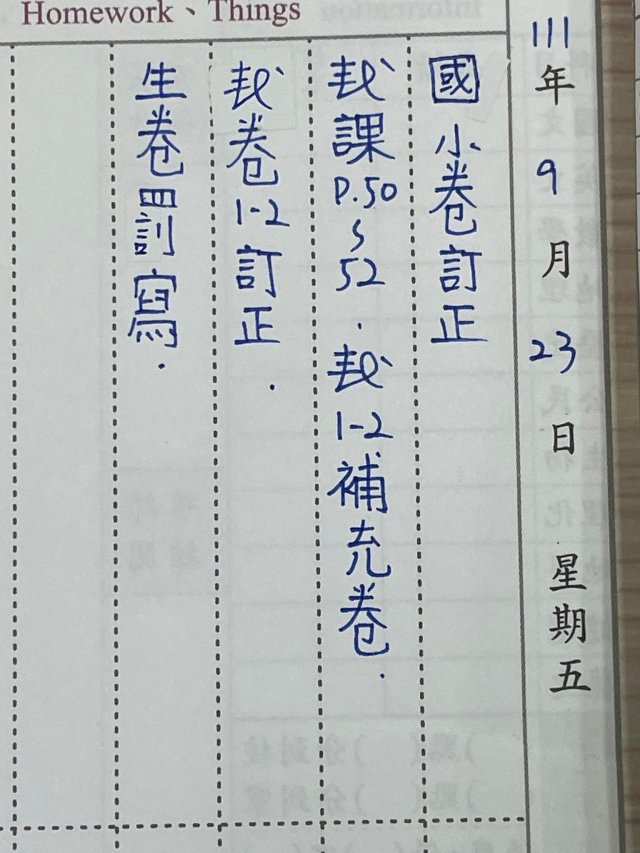 Homework、Things
111年9月23日 星期五
國 小卷訂正
課P.50~52.1-2補充卷.
卷1-2訂正.
生卷罰寫.